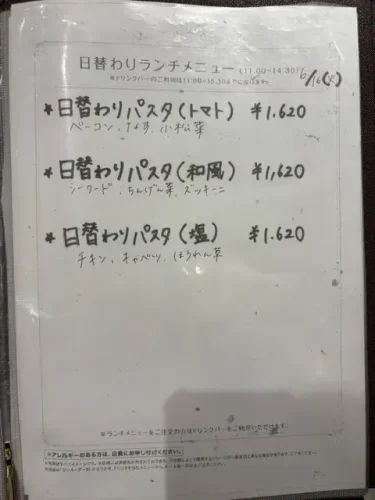 日替わりランチメニュー (11:00~14:30)
6/16(火)
※ドリンクバーのご利用は11:00~15:30までになります。
*日替わりパスタ(トマト) ¥1.620
ベーコン、なす、小松菜
*日替わりパスタ(和風) ¥1,620
シーフード、ちんげん菜、ズッキーニ
*日替わりパスタ(塩) ¥1.620
チキン、キャベツ、ほうれん草
※ランチメニューをご注文の方はドリンクバーをご利用いただけます。
※アレルギーのある方は、店員にお申し付けください。